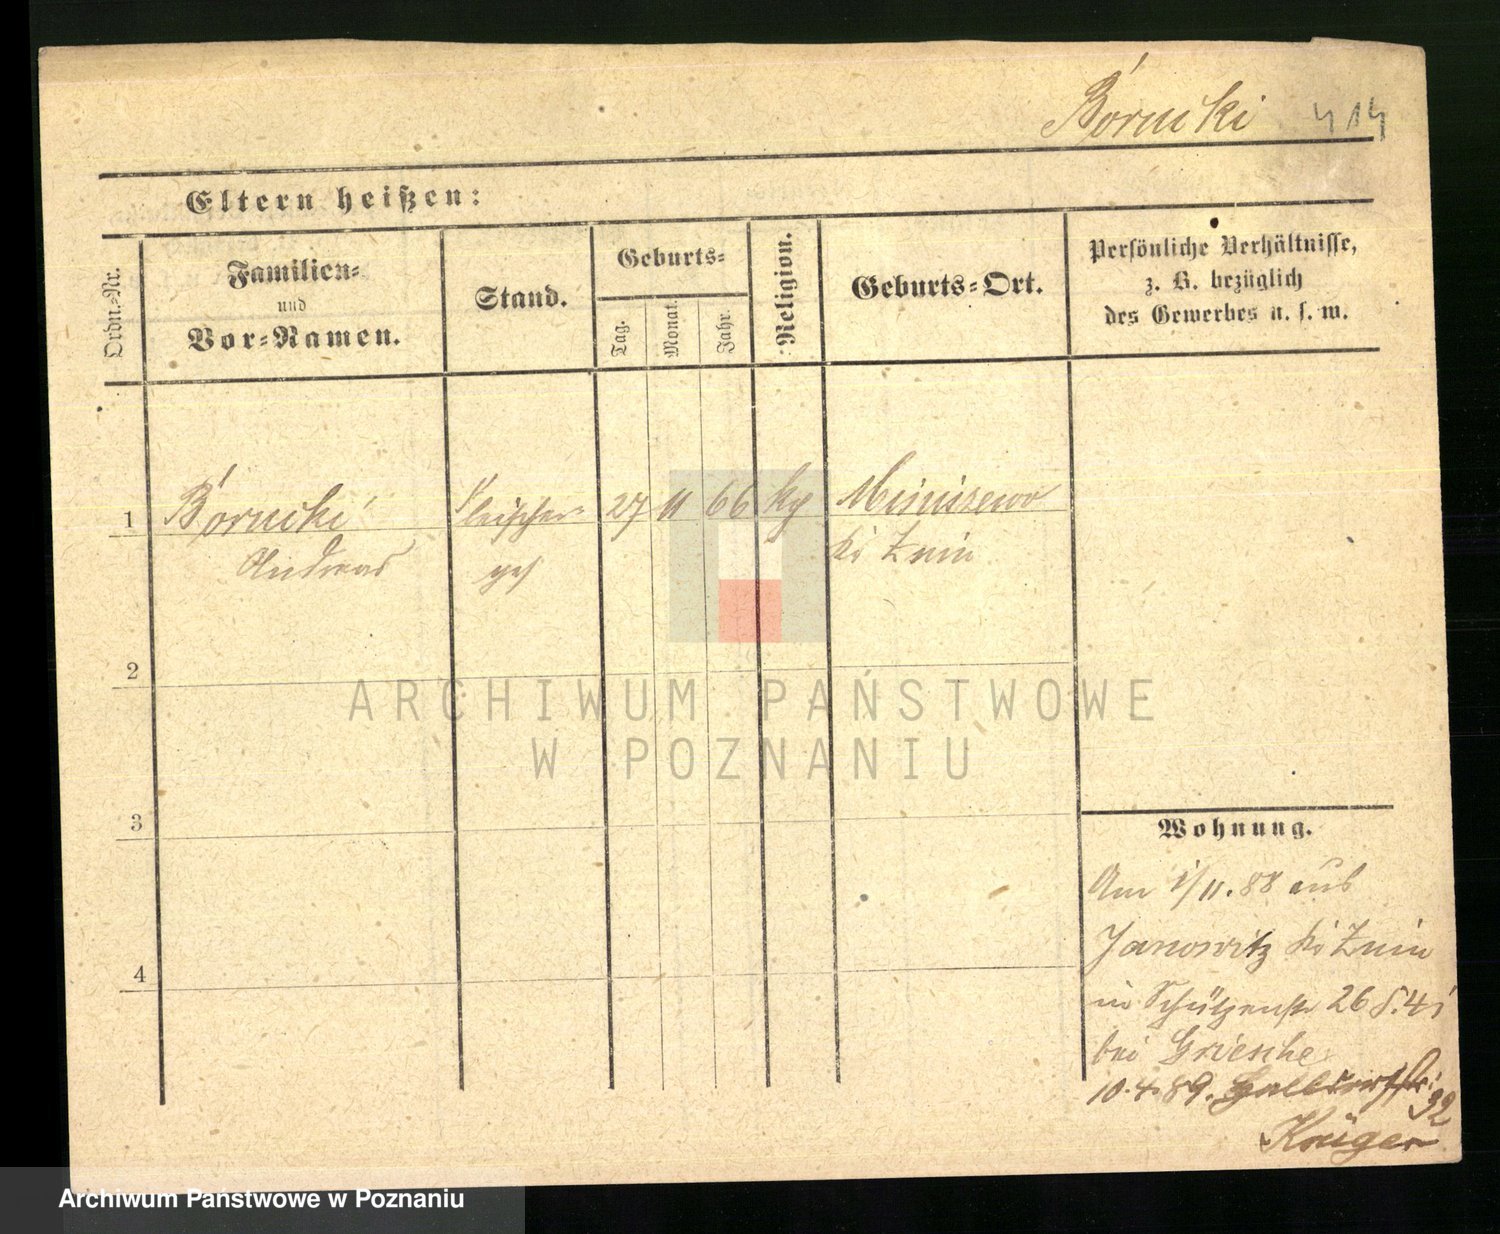 Bórnicki 414
Eltern heißen:
Ordn.-Nr.
Familien-
und
Vor-Namen.
Stand.
Geburts-
Tag.
Monat.
Jahr.
Religion.
Geburts-Ort.
Persönliche Verhältnisse,
z. B. bezüglich
des Gewerbes u. s. w.
1 Bórnicki Fleischer 27 11 66 Miniszewo
Andreas ges Znin
2
3
4
ARCHIWUM PAŃSTWOWE
W POZNANIU
Wohnung.
Am 1/11.88 aus
Janowitz Znin
in Schützenstr 26
bei Griesche
10.4.89. 32
Krüger
Archiwum Państwowe w Poznaniu